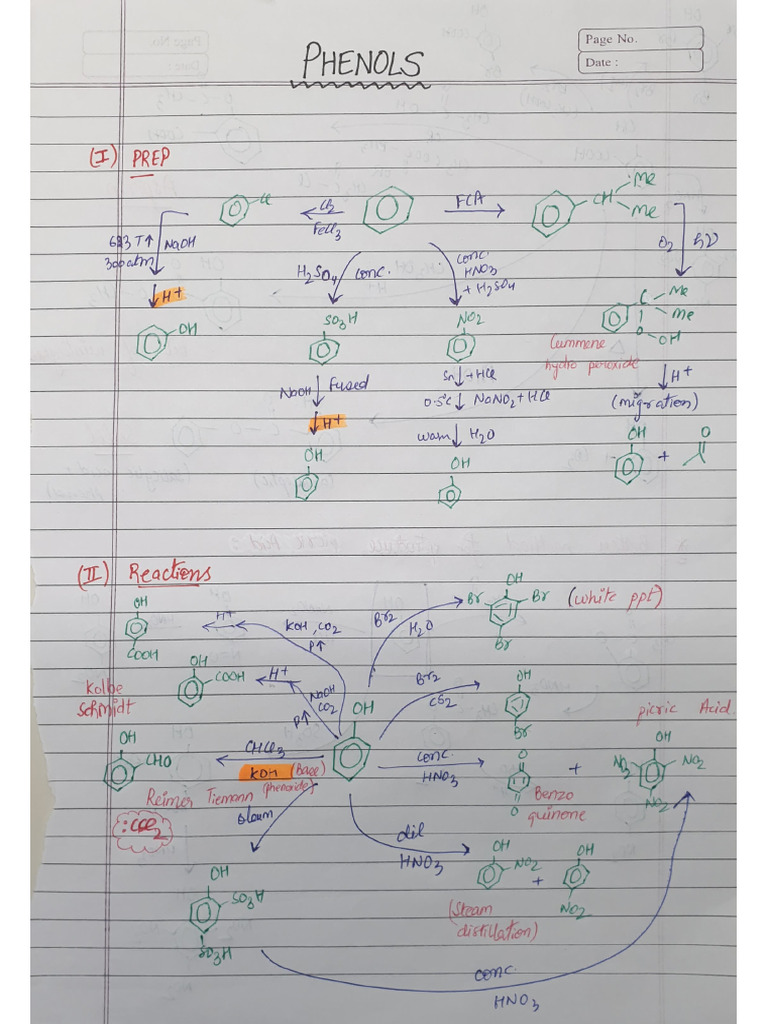 Page No.
Date :
PHENOLS
(I) PREP
Cl
Cl2
FeCl3
FCA
CH
Me
Me
623 T↑
300 atm
NaOH
H+
OH
H2SO4
conc.
conc
HNO3
+ H2SO4
O2
hν
SO3H
NO2
C
Me
Me
O
OH
Cummene
hydro peroxide
NaOH
Fused
H+
OH
Sn + HCl
0-5°C NaNO2 + HCl
warm H2O
OH
H+
(migration)
OH
+
O
(II) Reactions
OH
COOH
H+
KOH, CO2
P↑
Br2
H2O
OH
Br
Br
Br
(white ppt)
Kolbe
Schmidt
OH
COOH
H+
NaOH
CO2
P↑
Br2
CS2
OH
Br
OH
CHO
CHCl3
KOH (Base)
(phenoxide)
Reimer Tiemann
:CCl2
OH
conc.
HNO3
O
O
Benzo
quinone
+
picric Acid
OH
NO2
NO2
NO2
oleum
OH
SO3H
SO3H
dil
HNO3
OH
NO2
+
OH
NO2
(Steam
distillation)
conc.
HNO3